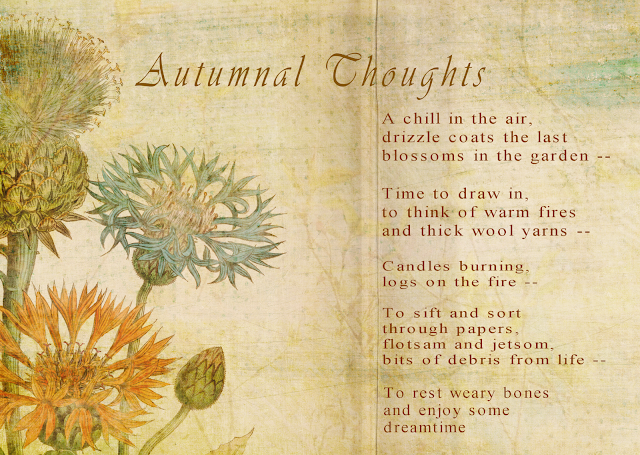 Autumnal Thoughts
A chill in the air,
drizzle coats the last
blossoms in the garden --
Time to draw in,
to think of warm fires
and thick wool yarns --
Candles burning,
logs on the fire --
To sift and sort
through papers,
flotsam and jetsom,
bits of debris from life --
To rest weary bones
and enjoy some
dreamtime